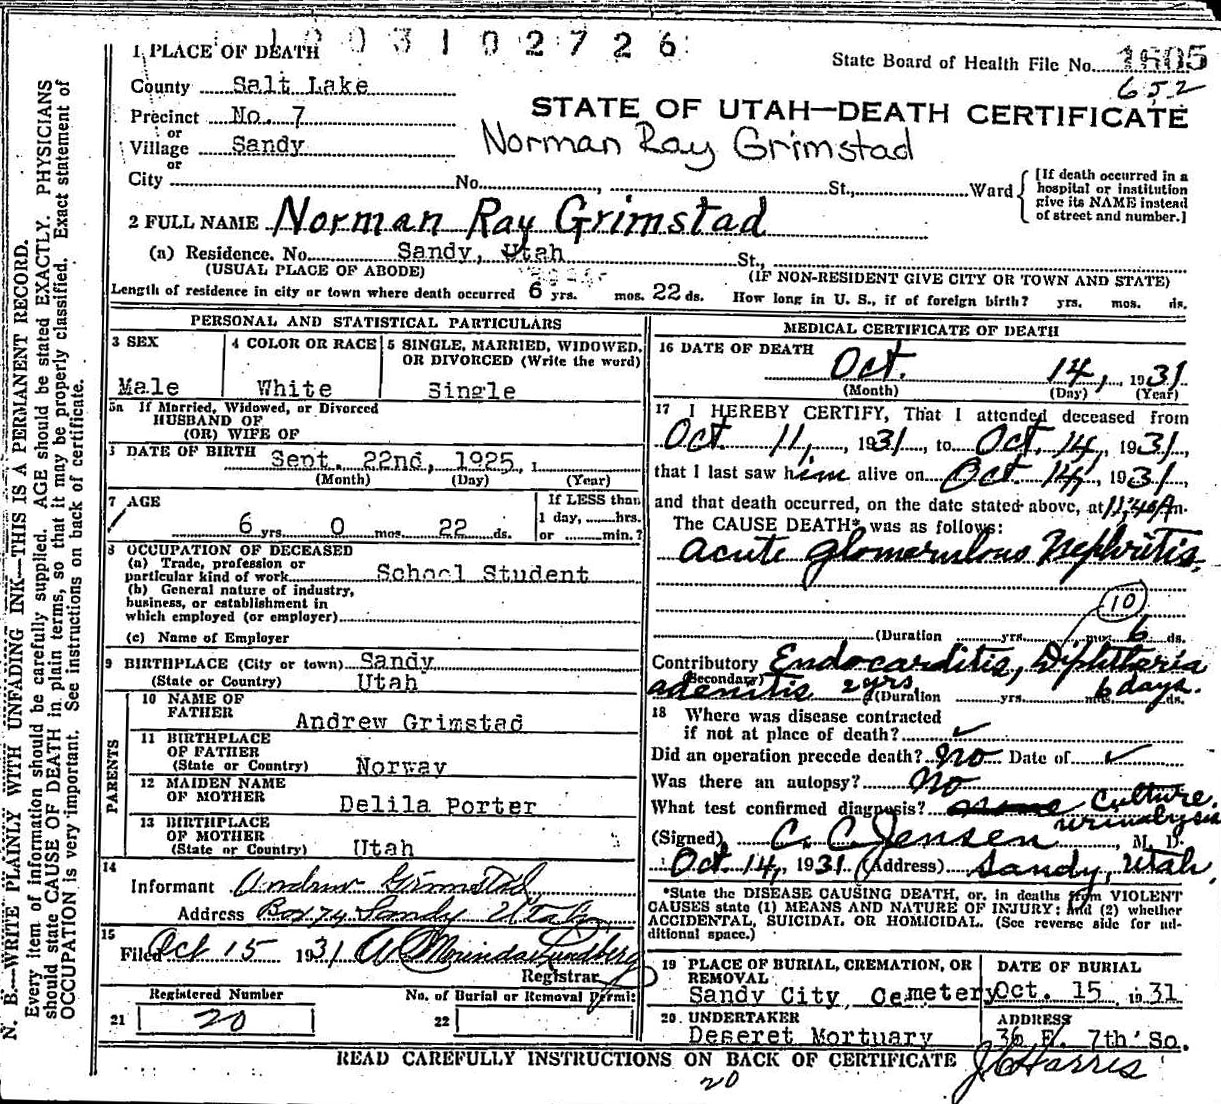 1003102726
1 PLACE OF DEATH
State Board of Health File No. 1605
652
County Salt Lake
STATE OF UTAH—DEATH CERTIFICATE
Precinct No. 7
or
Village Sandy
Norman Ray Grimstad
or
City No. , St., Ward
[If death occurred in a hospital or institution give its NAME instead of street and number.]
2 FULL NAME Norman Ray Grimstad
(a) Residence. No. Sandy, Utah St.,
(USUAL PLACE OF ABODE) (IF NON-RESIDENT GIVE CITY OR TOWN AND STATE)
Length of residence in city or town where death occurred 6 yrs. mos. 22 ds. How long in U. S., if of foreign birth? yrs. mos. ds.
PERSONAL AND STATISTICAL PARTICULARS
3 SEX 4 COLOR OR RACE 5 SINGLE, MARRIED, WIDOWED, OR DIVORCED (Write the word)
Male White Single
5a If Married, Widowed, or Divorced
HUSBAND OF
(OR) WIFE OF
DATE OF BIRTH Sept. 22nd, 1925, 1
(Month) (Day) (Year)
7 AGE
If LESS than
1 day, hrs.
or min.?
6 yrs. 0 mos. 22 ds.
8 OCCUPATION OF DECEASED
(a) Trade, profession or
particular kind of work School Student
(b) General nature of industry,
business, or establishment in
which employed (or employer)
(c) Name of Employer
9 BIRTHPLACE (City or town) Sandy
(State or Country) Utah
PARENTS
10 NAME OF
FATHER Andrew Grimstad
11 BIRTHPLACE
OF FATHER
(State or Country) Norway
12 MAIDEN NAME
OF MOTHER Delila Porter
13 BIRTHPLACE
OF MOTHER
(State or Country) Utah
14
Informant Andrew Grimstad
Address Box 74 Sandy Utah
15
Filed Oct 15 1931 Morinda Lundberg
Registrar
Registered Number No. of Burial or Removal Permit
21 20 22
MEDICAL CERTIFICATE OF DEATH
16 DATE OF DEATH
Oct. 14, 1931
(Month) (Day) (Year)
17 I HEREBY CERTIFY, That I attended deceased from
Oct. 11, 1931, to Oct. 14, 1931
that I last saw him alive on Oct. 14, 1931
and that death occurred, on the date stated above, at 11:40 A m.
The CAUSE DEATH* was as follows:
Acute glomerulous Nephritis,
10
(Duration yrs. mos. 6 ds.
Contributory Endocarditis, Diphtheria
(Secondary)
adenitis 2 yrs (Duration yrs. mos. 6 days. ds.
18 Where was disease contracted
if not at place of death?
Did an operation precede death? No Date of
Was there an autopsy? No
What test confirmed diagnosis? none Culture,
urinalysis
(Signed) C. C. Jensen, M. D.
Oct. 14, 1931 (Address) Sandy, Utah,
*State the DISEASE CAUSING DEATH, or, in deaths from VIOLENT
CAUSES state (1) MEANS AND NATURE OF INJURY; and (2) whether
ACCIDENTAL, SUICIDAL OR HOMICIDAL. (See reverse side for ad-
ditional space.)
19 PLACE OF BURIAL, CREMATION, OR DATE OF BURIAL
REMOVAL
Sandy City Cemetery Oct. 15 1931
20. UNDERTAKER ADDRESS
Deseret Mortuary 36 E. 7th So.
READ CAREFULLY INSTRUCTIONS ON BACK OF CERTIFICATE
J C Harris
20
N. B.—WRITE PLAINLY WITH UNFADING INK—THIS IS A PERMANENT RECORD.
Every item of information should be carefully supplied. AGE should be stated EXACTLY. PHYSICIANS
should state CAUSE OF DEATH in plain terms, so that it may be properly classified. Exact statement of
OCCUPATION is very important. See instructions on back of certificate.